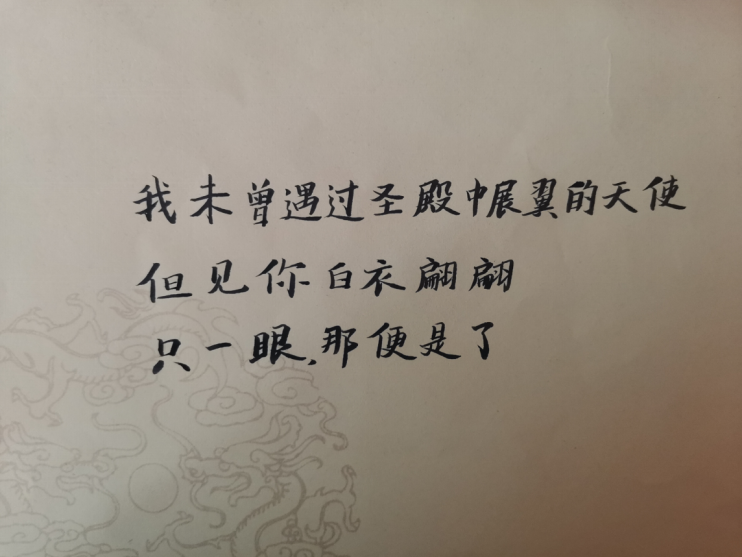 我未曾遇过圣殿中展翼的天使
但见你白衣翩翩
只一眼,那便是了